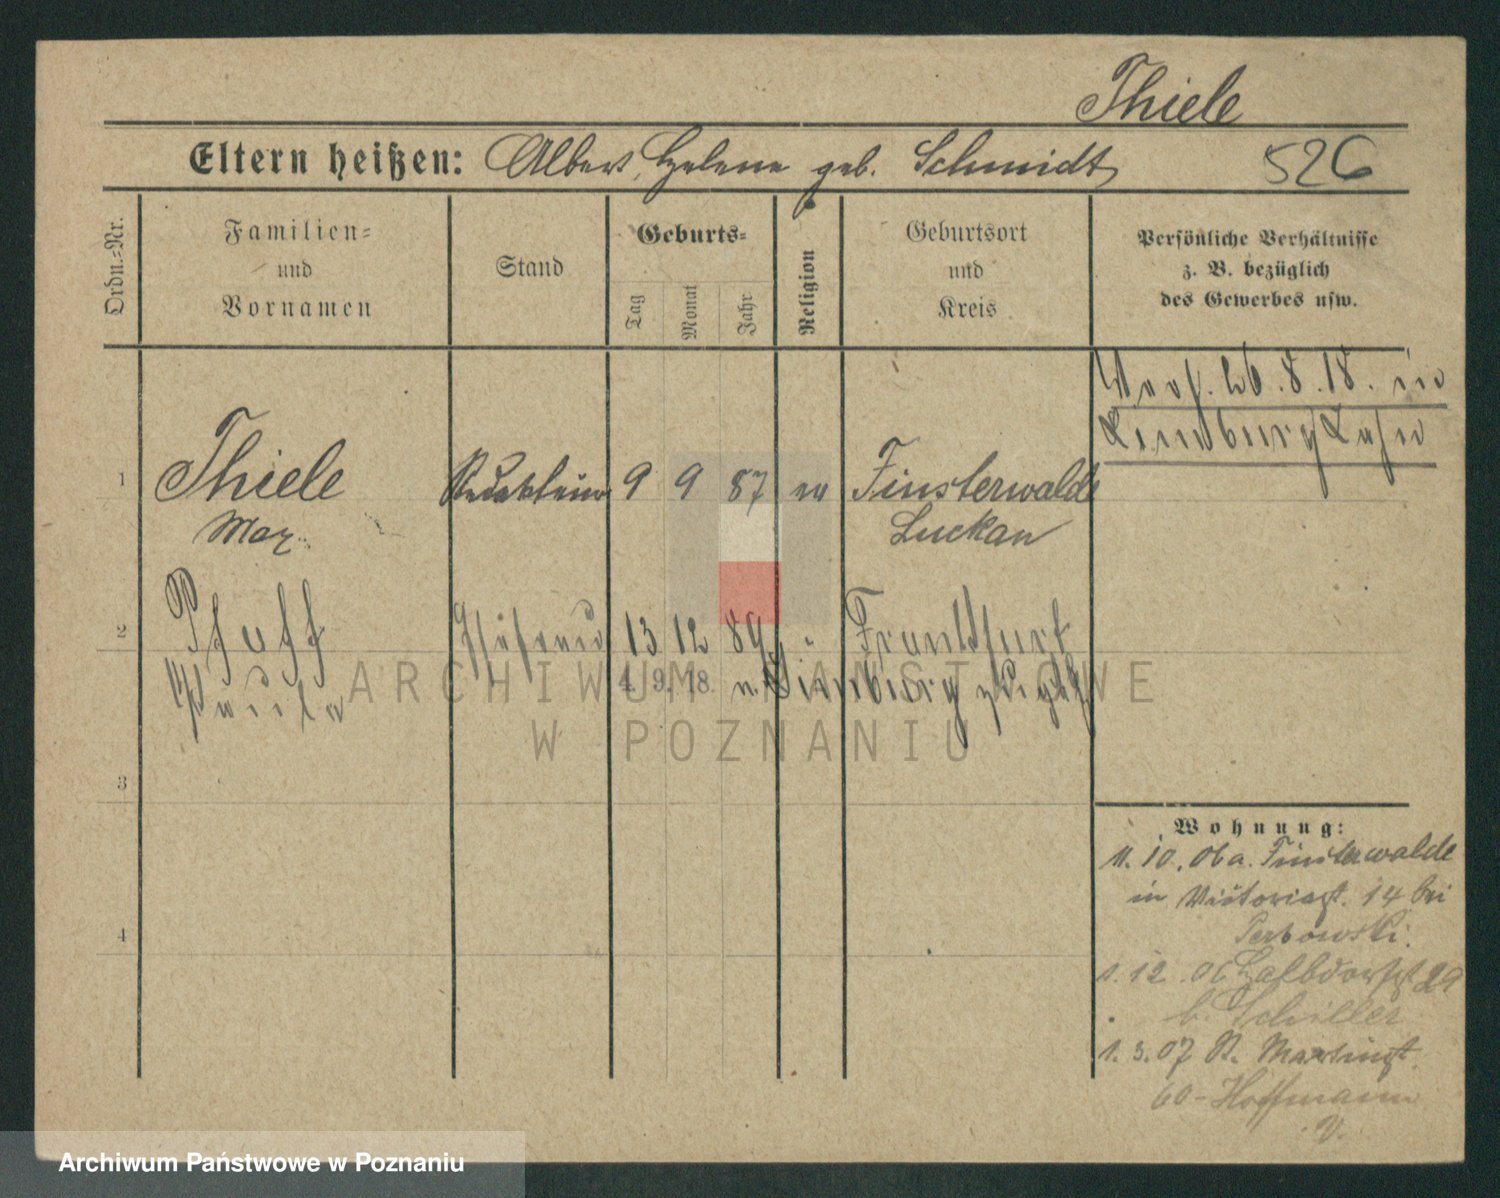 Thiele
Eltern heißen: Albert, Helene geb. Schmidt
526
Ordn.-Nr.
Familien-
und
Vornamen
Stand
Geburts-
Tag
Monat
Jahr
Religion
Geburtsort
und
Kreis
Persönliche Verhältnisse
z. B. bezüglich
des Gewerbes usw.
Verh. 26.8.18. in
Limburg Lahn
1
Thiele 9 9 87 ev Finsterwalde
Max Luckau
2
Pfaff 13 12 89 " Frankfurt
Paula
4. 9. 18
ARCHIWUM PAŃSTWOWE
W POZNANIU
3
4
Wohnung:
11.10.06 a. Finsterwalde
in Viktoriast. 14 bei
1.12.06 Halbdorfst 29
b. Schiller
1.3.07 St. Martinst.
60 - Hoffmann
V.
Archiwum Państwowe w Poznaniu